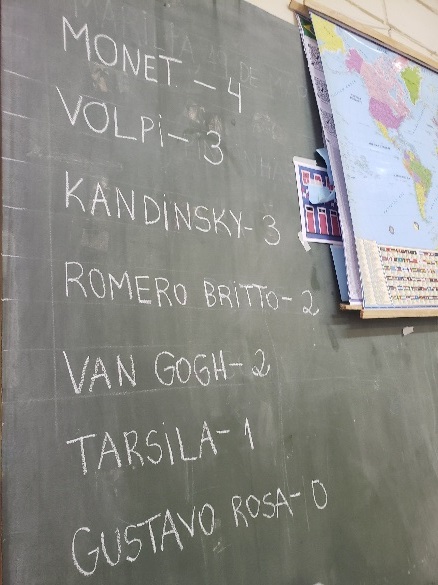 MONET - 4
VOLPi - 3
KANDiNSKY - 3
ROMERO BRiTTO - 2
VAN GOGH - 2
TARSiLA - 1
GUSTAVO ROSA - 0